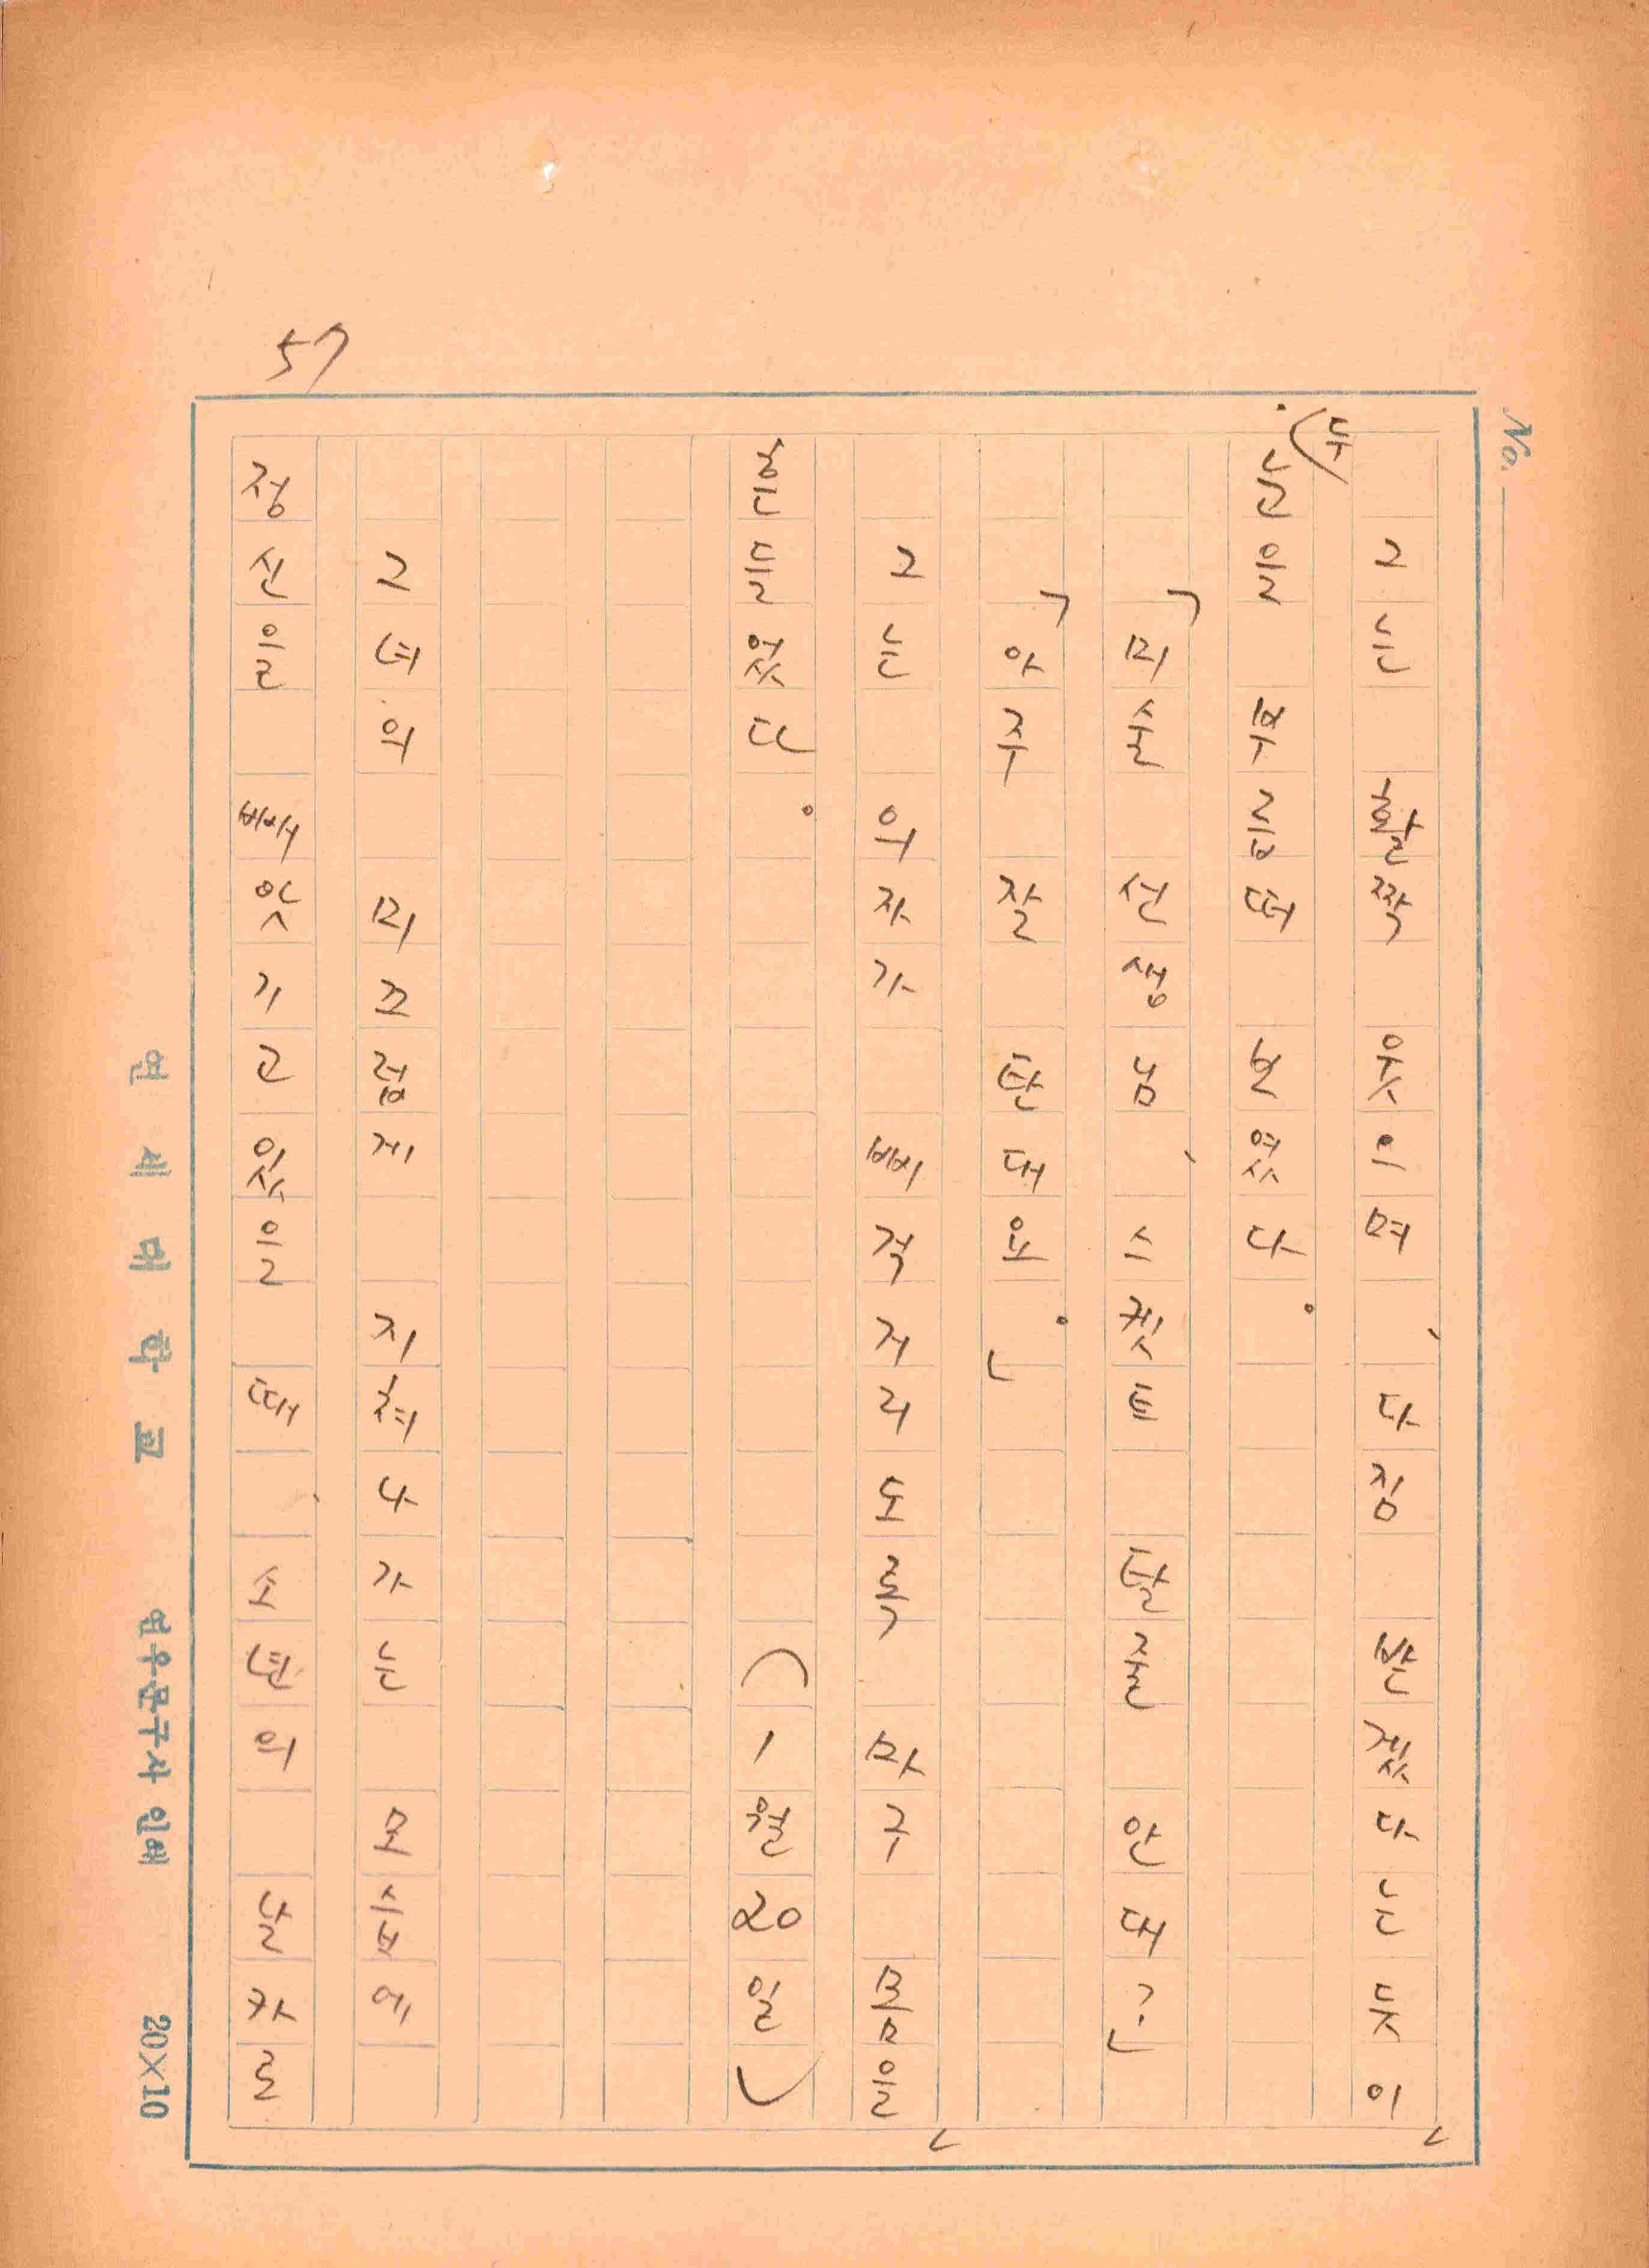 No.
57
그는 활짝 웃으며, 다짐 받겠다는듯이
(두
눈을 부릅떠 보였다.
「미술 선생님, 스켓트 탈줄 안대?」
「아주 잘 탄대요.」
그는 의자가 삐걱거리도록 마구 몸을
흔들었다. (1월20일)
그녀의 미끄럽게 지쳐나가는 모습에
정신을 빼앗기고 있을 때, 소년의 날카로
연세대학교 연우문구사 인쇄 20×10